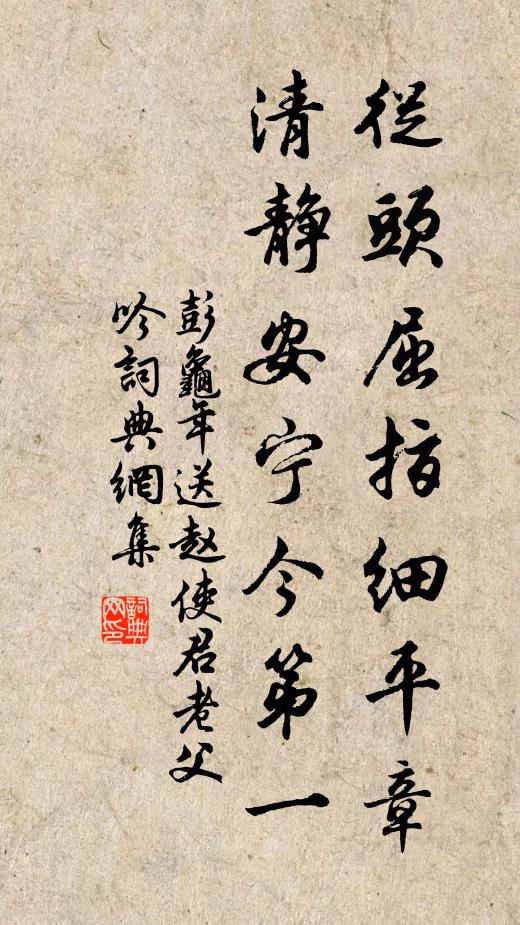 從頭屈指細平章
清靜安宁今第一
彭龜年送赵使君老父
吟詞典網集
詞典
网印